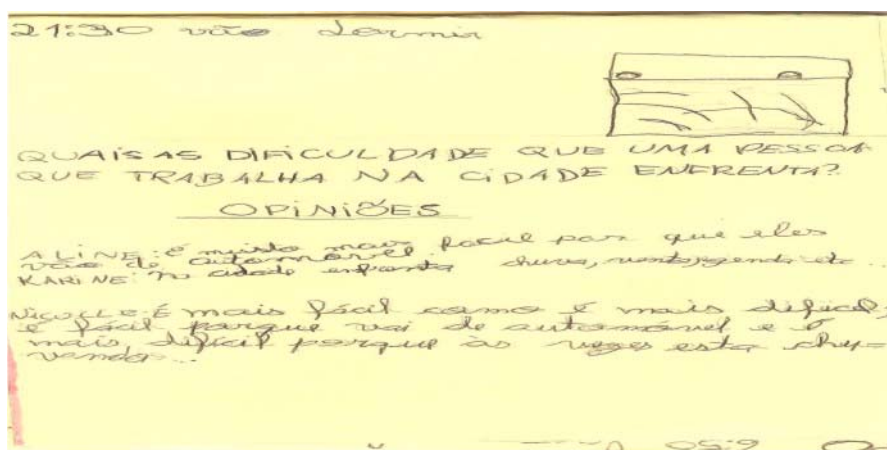 21:30 vão dormir
QUAIS AS DIFICULDADE QUE UMA PESSOA
QUE TRABALHA NA CIDADE ENFRENTA?
OPINIÕES
ALINE: é muito mais facil por que eles
vão de automóvel.
KARINE: na cidade enfrenta chuva, vento, etc
NICOLLE: É mais fácil como é mais difícil,
é fácil porque vai de automóvel e é
mais difícil porque às vezes esta chu-
vendo...